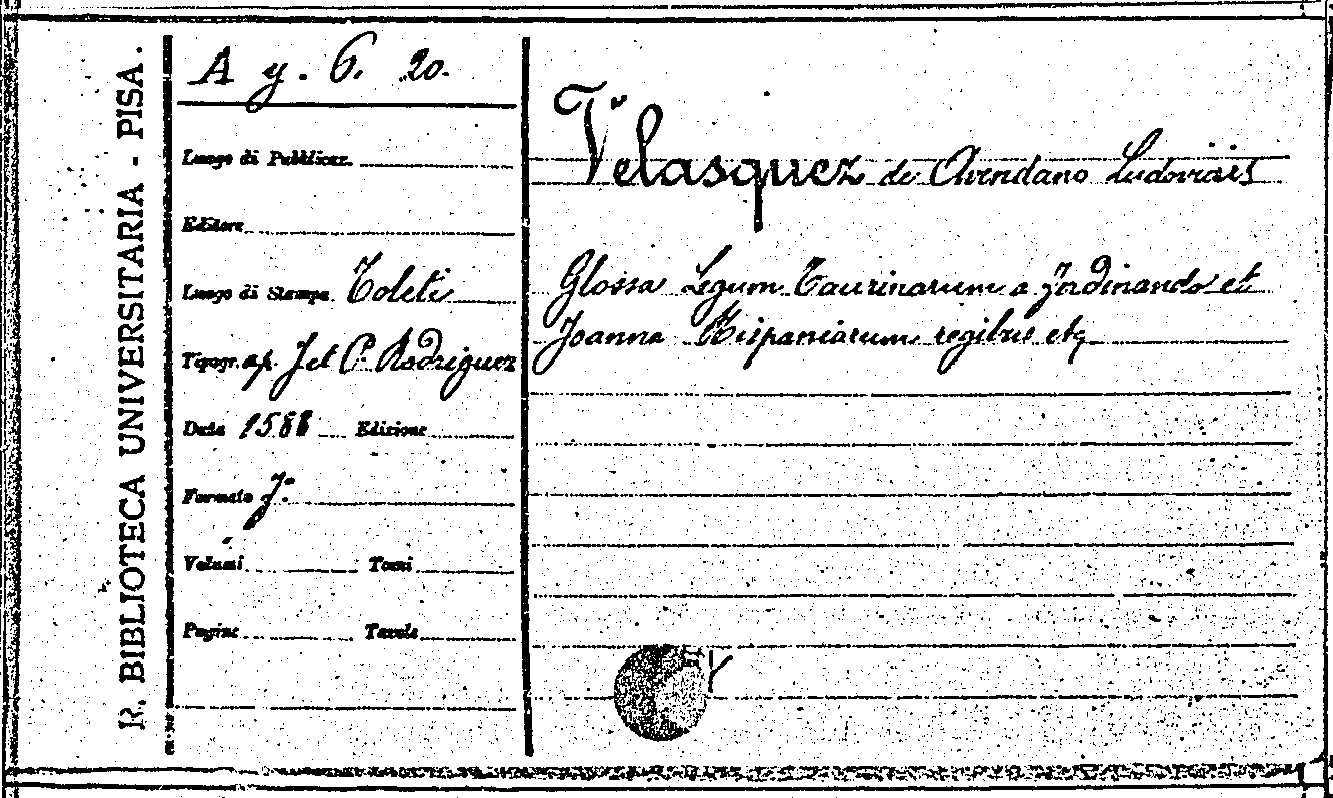 R. BIBLIOTECA UNIVERSITARIA - PISA.
A y. 6. 20.
Luogo di Pubblicaz.
Editore
Luogo di Stampa Toleti
Tipogr. ap. J et P. Rodriguez
Data 1588 Edizione
Formato f.°
Volumi Tomi
Pagine Tavole
Velasquez de Avendano Ludovicus
Glossa Legum Taurinarum a Ferdinando et
Joanna Hispaniarum regibus etc